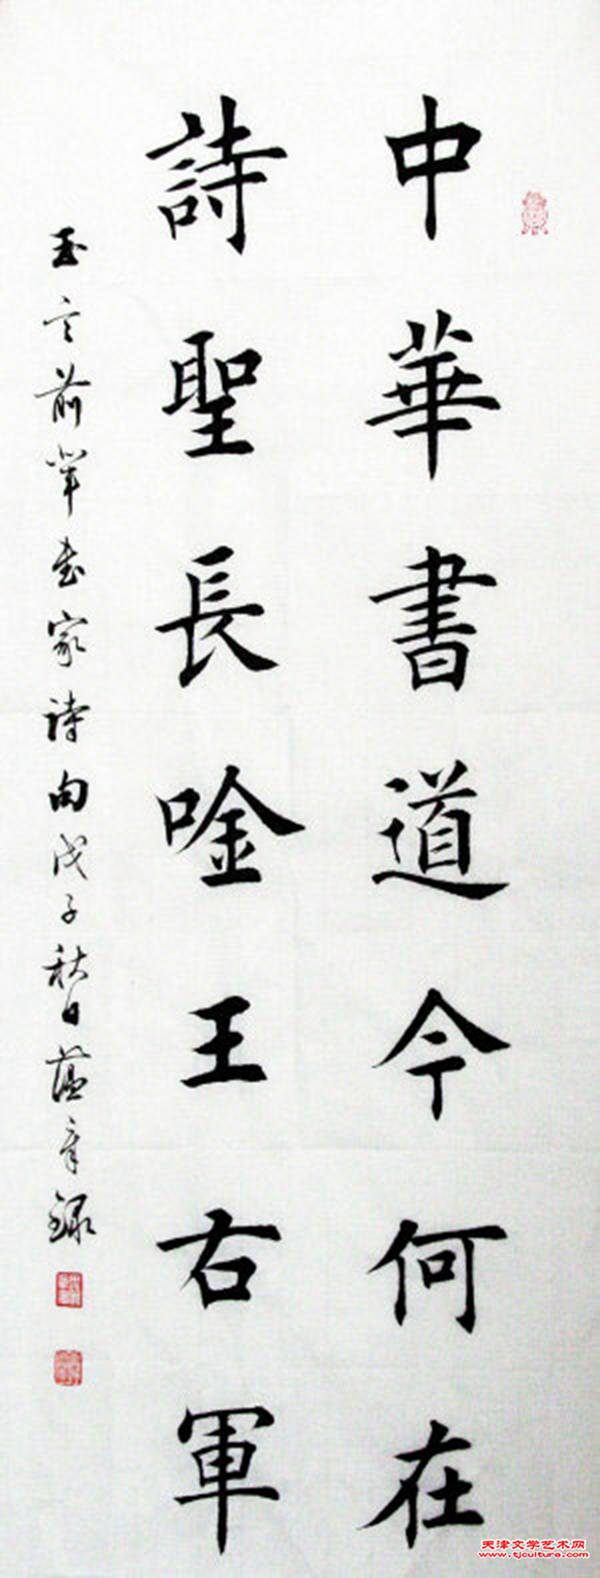 中華書道今何在
詩聖長唫王右軍
玉言前輩書家詩句戊子秋日蘊章錄
天津文学艺术网
www.tjculture.com